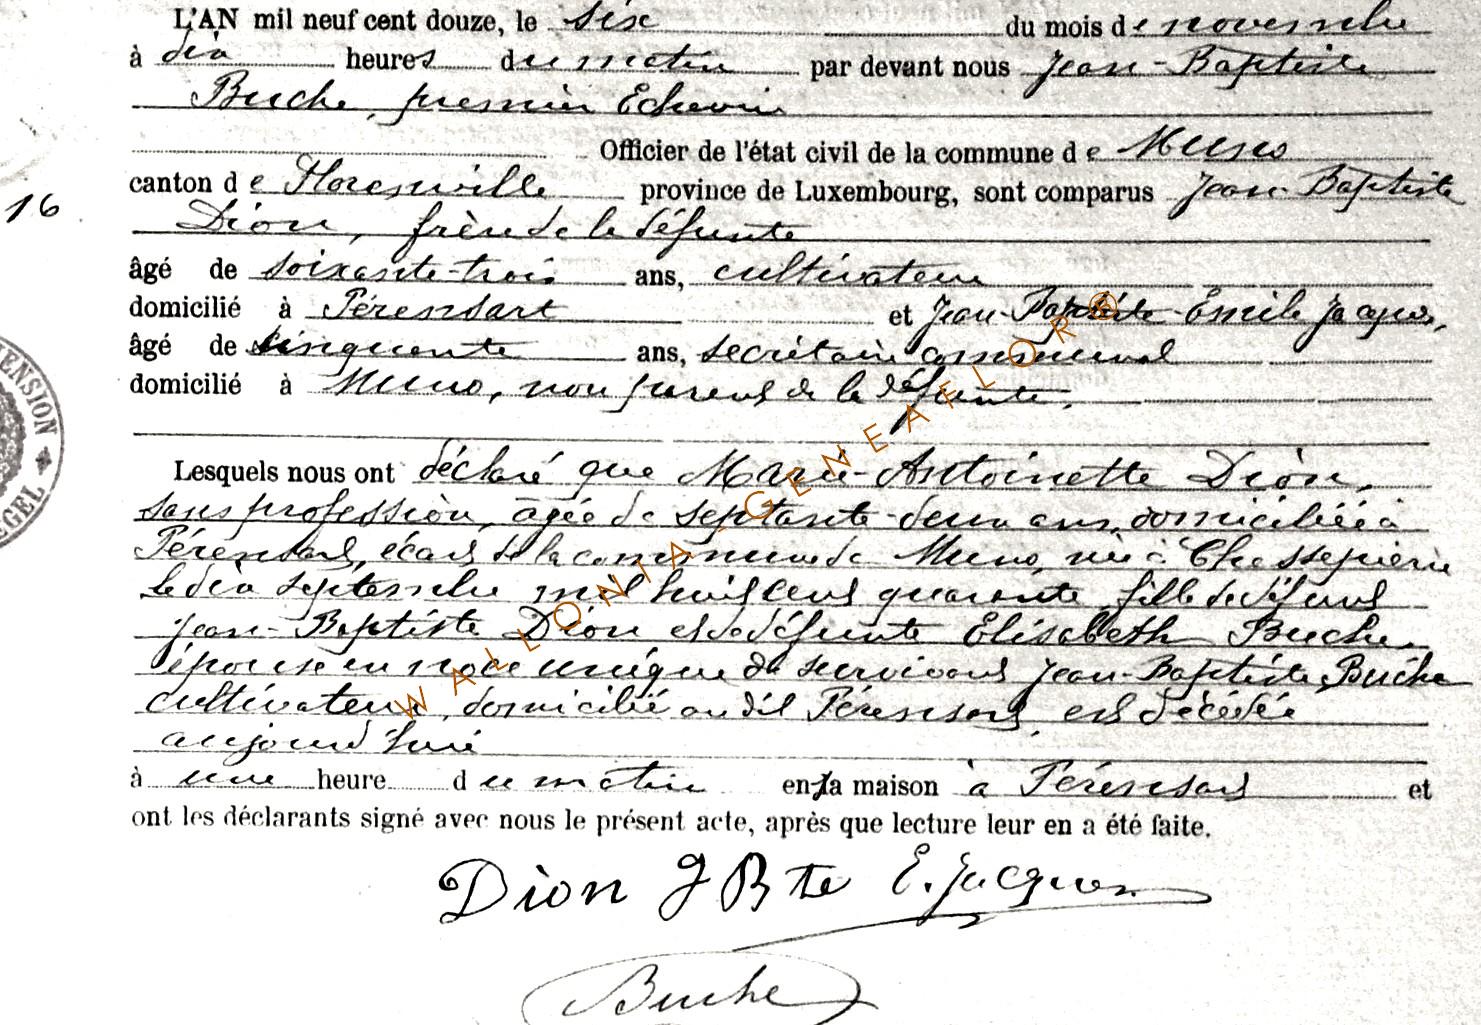 L'AN mil neuf cent douze, le six du mois de novembre
à dix heures du matin par devant nous Jean-Baptiste
Buche, premier Echevin
Officier de l'état civil de la commune de Muno
canton de Florenville province de Luxembourg, sont comparus Jean-Baptiste
16
Dion, frère de la défunte
âgé de soixante-trois ans, cultivateur
domicilié à Pérensart et Jean-Baptiste-Emile Jacques,
âgé de cinquante ans, secrétaire communal
domicilié à Muno, non parent de la défunte.
ENSION
EGEL
Lesquels nous ont déclaré que Marie-Antoinette Dion,
sans profession, âgée de septante-deux ans, domiciliée à
Pérensart, écart de la commune de Muno, née à Chassepierre
le dix septembre mil huit cent quarante fille de défunt
Jean-Baptiste Dion et de défunte Elisabeth Buche,
épouse en noce unique du survivant Jean-Baptiste Buche
cultivateur, domicilié au dit Pérensart, est décédée
aujourd'hui
à une heure du matin en la maison à Pérensart et
ont les déclarants signé avec nous le présent acte, après que lecture leur en a été faite.
Dion J Bte E. Jacques
Buche
WALLONIA-GENEAFLOR®